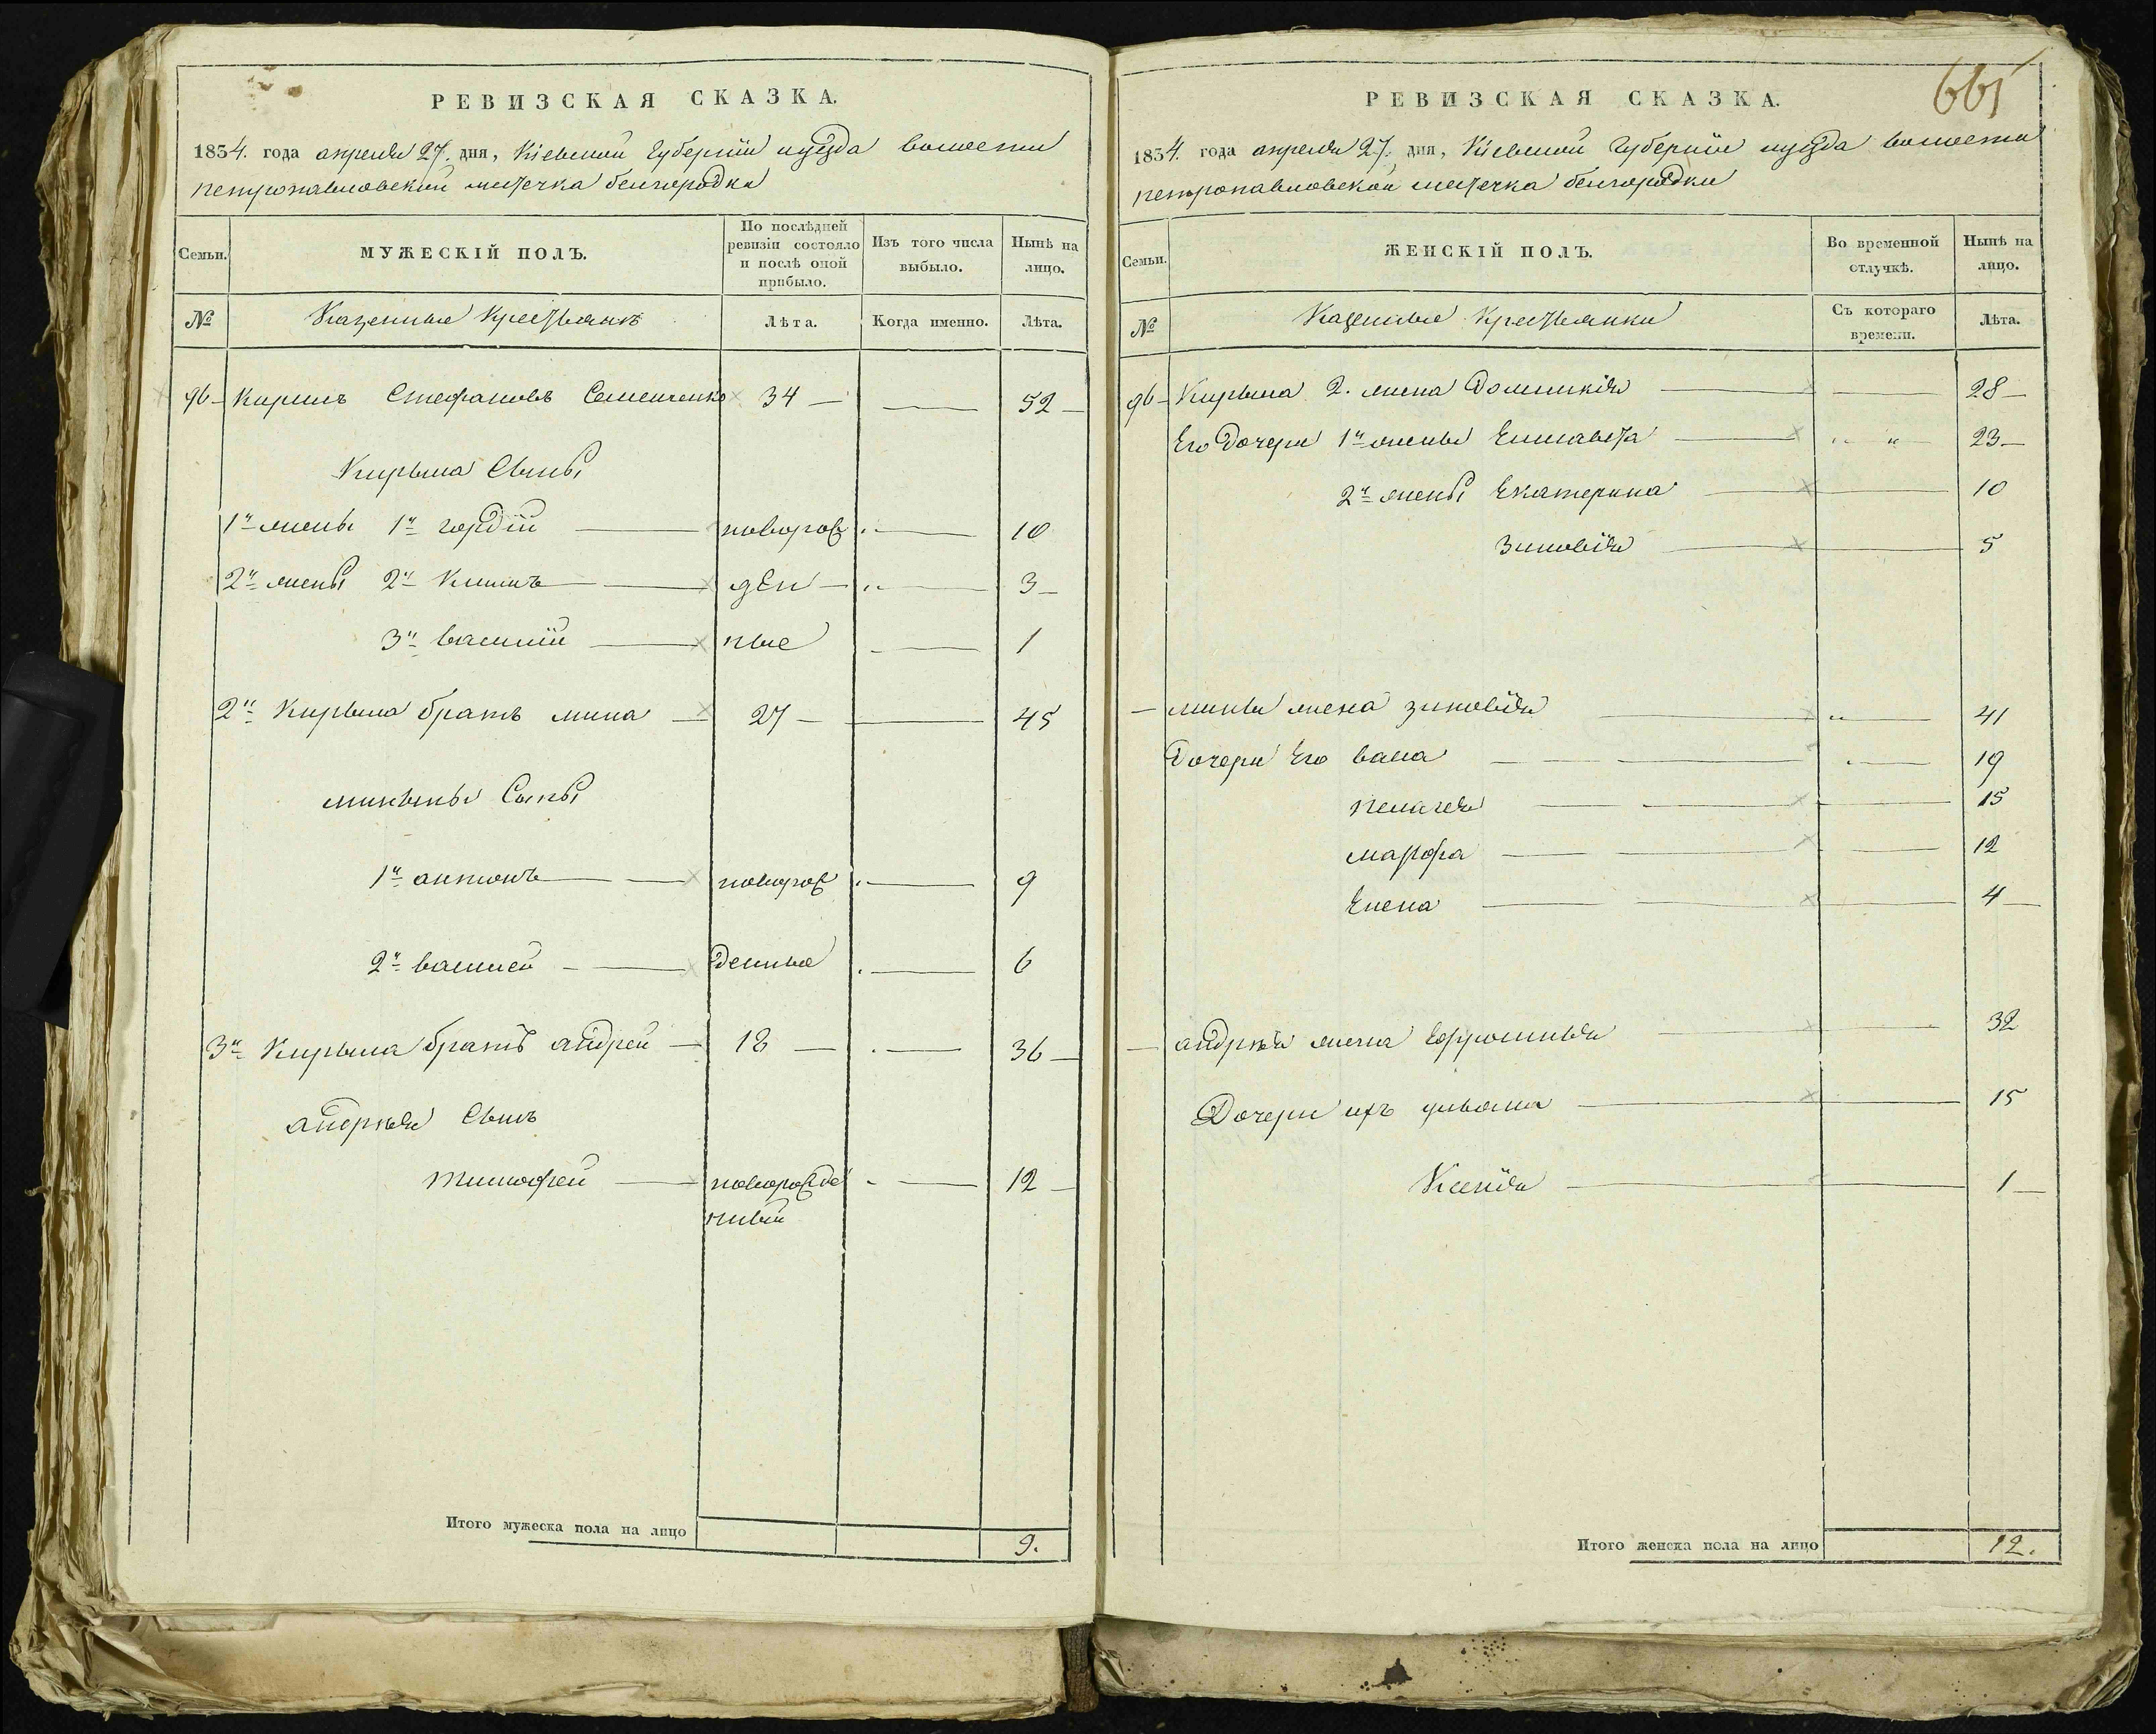 РЕВИЗСКАЯ СКАЗКА.
1834. года апреля 27. дня, Кіевской Губерніи уезда волости
петропавловской местечка белгородки
Семьи.
МУЖЕСКІЙ ПОЛЪ.
По послѣдней ревизіи состояло и послѣ оной прибыло.
Изъ того числа выбыло.
Нынѣ на лицо.
№
Казенные Крестьянъ
Лѣта.
Когда именно.
Лѣта.
96 Кирилъ Стефановъ Семенченко 34 52
Кирыла Сыны
1й жены 1й гордій новорож 10
2й жены 2й Климъ ден 3
3й василій ные 1
2й Кирыла братъ мина 27 45
минины Сыны
1й антонъ новорож 9
2й василей денные 6
3й Кирыла братъ андрей 18 36
андрѣя Сынъ
тимофей новорожде 12
нный
Итого мужеска пола на лицо 9.
РЕВИЗСКАЯ СКАЗКА.
661
1834. года апреля 27. дня, Кіевской Губерніи уезда волости
петропавловской местечка белгородки
Семьи.
ЖЕНСКІЙ ПОЛЪ.
Во временной отлучкѣ.
Нынѣ на лицо.
№
Казенные Крестьянки
Съ котораго времени.
Лѣта.
96 Кирыла 2. жена Домникія 28
Его Дочери 1й жены Елисавета 23
2й жены Екатерина 10
Зиновія 5
мины жена зиновія 41
Дочери Его васа 19
пелагея 15
марфа 12
Елена 4
андрѣя жена Ефросинья 32
Дочери ихъ уляна 15
Ксенія 1
Итого женска пола на лицо 12.